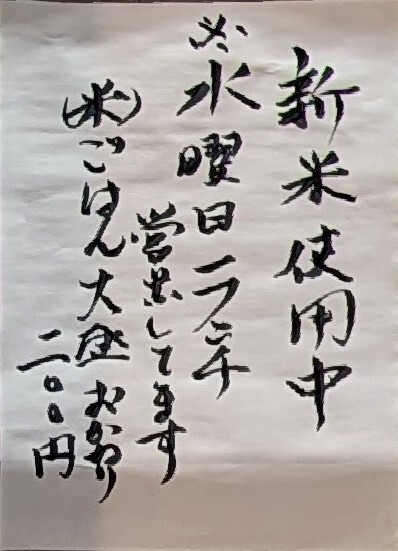 新米使用中
※水曜日ランチ
営業してます
(米)ごはん大盛おかわり
二〇〇円